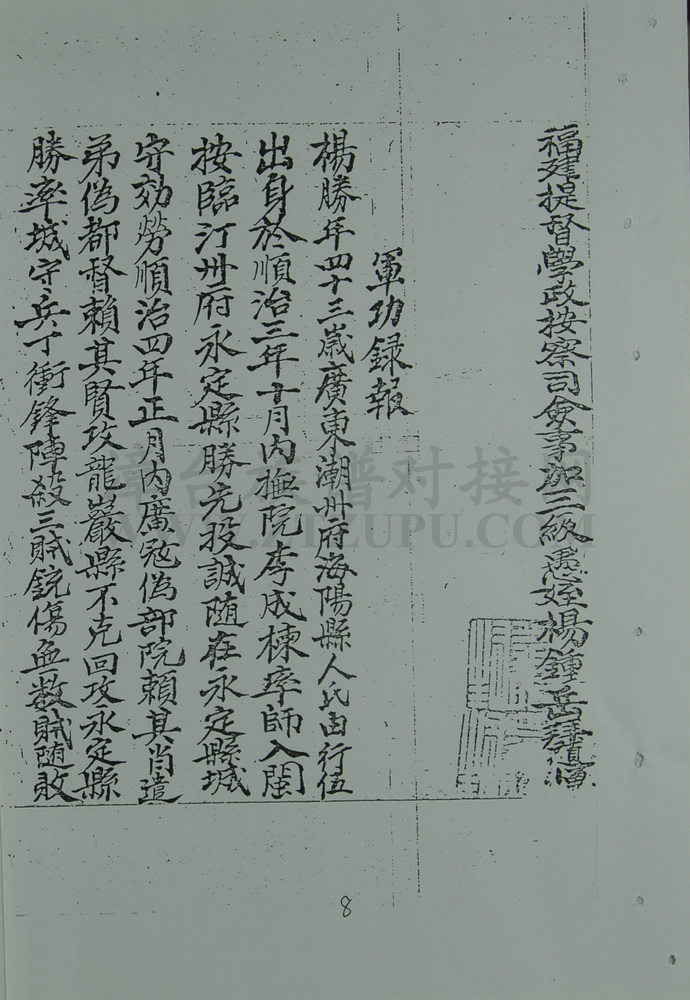 福建提督學政按察司僉事加三級愚姪楊鍾岳拜題
軍功録報
楊勝年四十三歳廣東潮州府海陽縣人氏由行伍
出身於順治三年十月内撫院李成棟率師入閩
按臨汀州府永定縣勝先投誠随在永定縣城
守効勞順治四年正月内廣冦偽部院賴其肖遣
弟偽都督賴其賢攻龍巖縣不克回攻永定縣
勝率城守〻兵丁衝鋒陣殺三賊銃傷無数賊随敗
台族谱对接网
WWW.ZTZUPU.COM
8